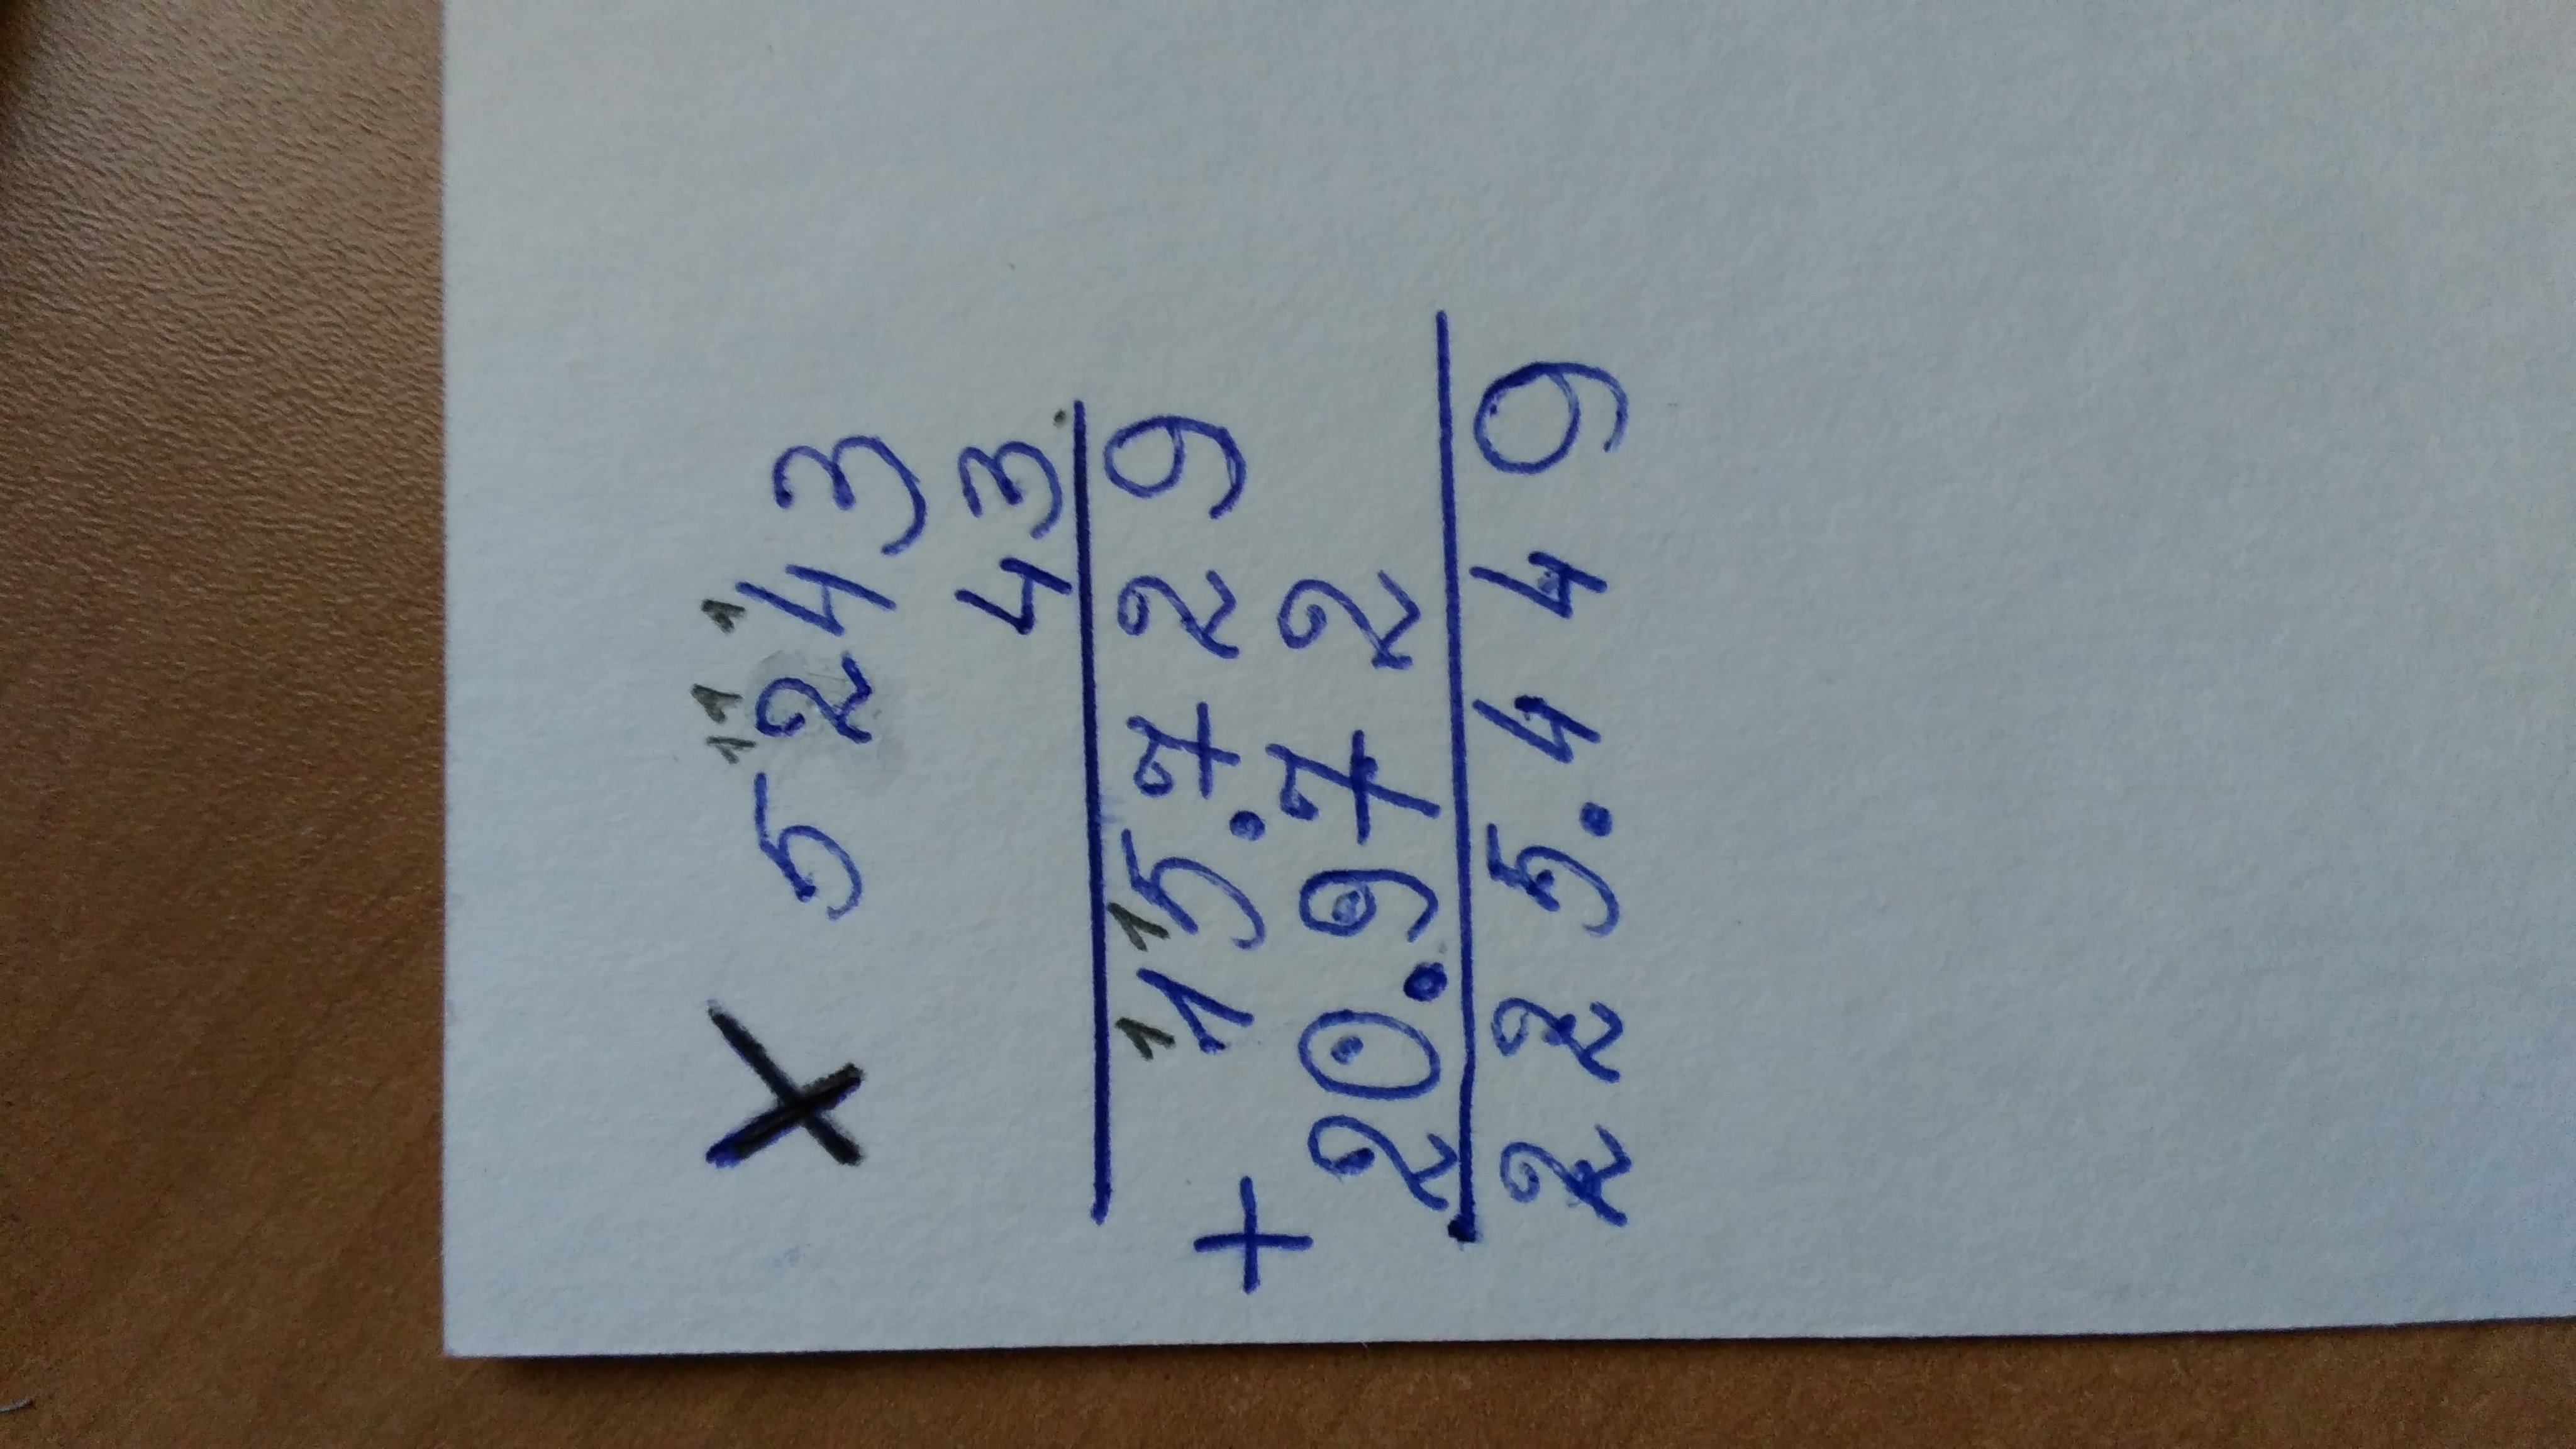 11 1
× 5243
43
1 1
15.729
+ 20.972
225.449